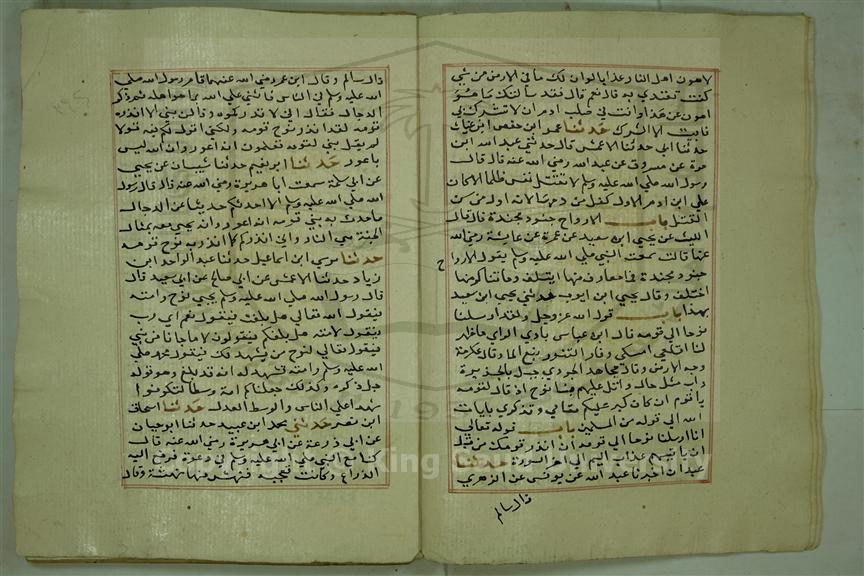 لاهون اهل النار عذابا لوان لك ما في الارض من شي
كنت تفتدي به قال نعم قال فقد سالتك ما هو
اهون من هذا وانت في صلب ادم ان لا تشرك بي
فابيت الا الشرك حدثنا عمر ابن حفص ابن غياث
حدثنا ابي حدثنا الاعمش قال حدثني عبد الله ابن
مرة عن مسروق عن عبد الله رضي الله عنه قال قال
رسول الله صلي الله عليه وسلم لا تقتل نفس ظلما الا كان
علي ابن ادم الاول كفل من دمها لانه اول من سن
القتل باب الارواح جنود مجندة قال قال
الليث عن يحيي ابن سعيد عن عمرة عن عايشة رضي الله
عنها قالت سمعت النبي صلي الله عليه وسلم يقول الاروا
ح
جنود مجندة فما تعارف منها ايتلف وما تناكر منها
اختلف وقال يحيي ابن ايوب حدثني يحيي ابن سعيد
بهذا باب قول الله عز وجل ولقد ارسلنا
نوحا الي قومه قال ابن عباس بادي الراي ما ظهر
لنا اقلعي امسكي وفار التنور نبع الما وقال عكرمة
وجه الارض وقال مجاهد الجودي جبل بالجزيرة
داب مثل حال واتل عليهم نبا نوح اذ قال لقومه
يا قوم ان كان كبر عليكم مقامي وتذكيري بايات
الله الي قوله من المسلمين باب قوله تعالي
انا ارسلنا نوحا الي قومه ان انذر قومك من قبل
ان ياتيهم عذاب اليم الي اخر السورة حدثنا
عبدان اخبرنا عبد الله عن يونس عن الزهري
قال سالم
قال سالم وقال ابن عمر رضي الله عنهما قام رسول الله صلي
الله عليه وسلم في الناس فاثني علي الله بما هو اهله ثم ذكر
الدجال فقال اني لانذركموه وما من نبي الا انذره
قومه لقد انذر نوح قومه ولكني اقول لكم فيه قولا
لم يقل نبي لقومه تعلمون انه اعور وان الله ليس
باعور حدثنا ابو نعيم حدثنا شيبان عن يحيي
عن ابي سلمة سمعت ابا هريرة رضي الله عنه قال قال رسول
الله صلي الله عليه وسلم الا احدثكم حديثا عن الدجال
ما حدث به نبي قومه انه اعور وانه يجي معه بمثال
الجنة هي النار واني انذركم كما انذر به نوح قومه
حدثنا موسي ابن اسماعيل حدثنا عبد الواحد ابن
زياد حدثنا الاعمش عن ابي صالح عن ابي سعيد قال
قال رسول الله صلي الله عليه وسلم يجي نوح وامته
فيقول الله تعالي هل بلغت فيقول نعم اي رب
فيقول لامته هل بلغكم فيقولون لا ما جانا من نبي
فيقول تعالي لنوح من يشهد لك فيقول محمد صلي
الله عليه وسلم وامته تشهد له انه قد بلغ وهو قوله
جل ذكره وكذلك جعلناكم امة وسطا لتكونوا
شهدا علي الناس والوسط العدل حدثنا اسحاق
ابن نصر حدثني محمد ابن عبيد حدثنا ابو حيان
عن ابي زرعة عن ابي هريرة رضي الله عنه قال
كنا مع النبي صلي الله عليه وسلم في دعوة فرفع اليه
الذراع وكانت تعجبه فنهس منها نهسة وقال